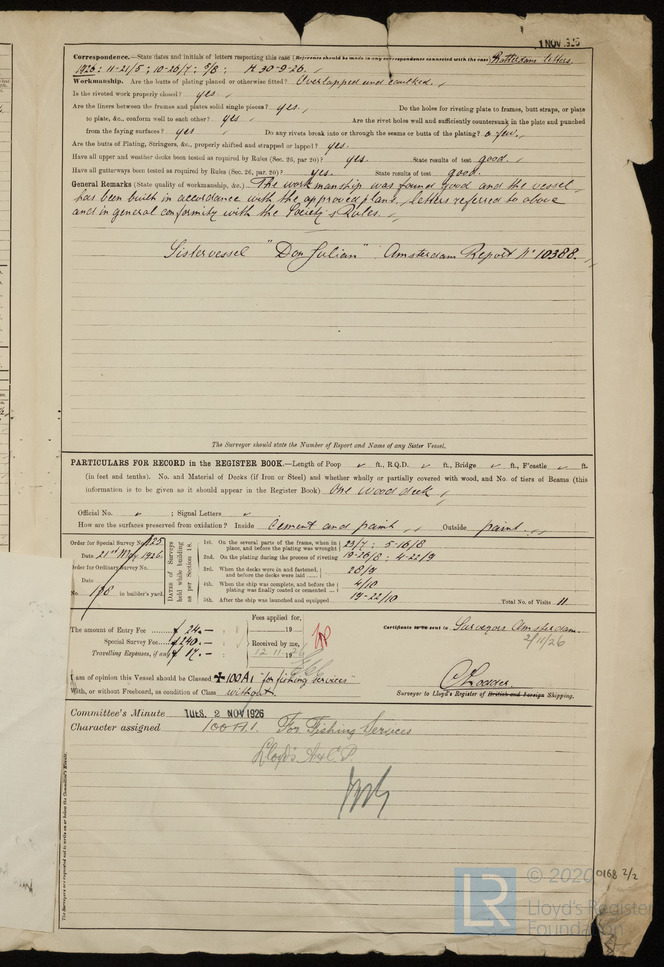 1 NOV 1926
Correspondence.—State dates and initials of letters respecting this case (Reference should be made in any correspondence connected with the case) Rotterdam letters.
1926: 11-21/5; 10-20/7; 5/8; H 30-9-26.
Workmanship. Are the butts of plating planed or otherwise fitted? Overlapped and caulked.
Is the riveted work properly closed? yes
Are the liners between the frames and plates solid single pieces? yes. Do the holes for riveting plate to frames, butt straps, or plate
to plate, &c., conform well to each other? yes Are the rivet holes well and sufficiently countersunk in the plate and punched
from the faying surfaces? yes Do any rivets break into or through the seams or butts of the plating? a few.
Are the butts of Plating, Stringers, &c., properly shifted and strapped or lapped? yes.
Have all upper and weather decks been tested as required by Rules (Sec. 26, par 20)? yes. State results of test good.
Have all gutterways been tested as required by Rules (Sec. 26, par. 20)? yes. State results of test good.
General Remarks (State quality of workmanship, &c.) The workmanship was found good and the vessel
has been built in accordance with the approved plans, letters referred to above
and in general conformity with the Society's Rules.
Sistervessel "Don Julian" Amsterdam Report No 10388.
The Surveyor should state the Number of Report and Name of any Sister Vessel.
PARTICULARS FOR RECORD in the REGISTER BOOK.—Length of Poop ft., R.Q.D. ft., Bridge ft., F'castle ft.
(in feet and tenths). No. and Material of Decks (if Iron or Steel) and whether wholly or partially covered with wood, and No. of tiers of Beams (this
information is to be given as it should appear in the Register Book) One wood deck
Official No. ; Signal Letters
How are the surfaces preserved from oxidation? Inside Cement and paint Outside paint.
Order for Special Survey No. 825
Date 21st May 1926
Order for Ordinary Survey No.
Date
No. 178 in builder's yard.
DATES of Surveys held while building as per Section 18.
1st. On the several parts of the frame, when in place, and before the plating was wrought 23/7; 5-16/8
2nd. On the plating during the process of riveting 19-26/8; 4-22/9
3rd. When the decks were in and fastened, and before the decks were laid 28/9
4th. When the ship was complete, and before the plating was finally coated or cemented 4/10
5th. After the ship was launched and equipped 19-22/10
Total No. of Visits 11.
The amount of Entry Fee £ 24.—
Special Survey Fee £ 240.—
Travelling Expenses, if any £ 17.—
Fees applied for,
19
Received by me,
12.11.1926
Certificate to be sent to Surveyors Amsterdam.
2/11/26
I am of opinion this Vessel should be Classed ✠100A1 "for fishing services"
With, or without Freeboard, as condition of Class without
Surveyor to Lloyd's Register of British and Foreign Shipping.
Committee's Minute TUES. 2 NOV 1926
Character assigned 100A1. For Fishing Services
Lloyd's A&CP.
The Surveyors are requested not to write on or below the Committee's Minute.
© 2020
LR
Lloyd's Register
Foundation
0168 2/2